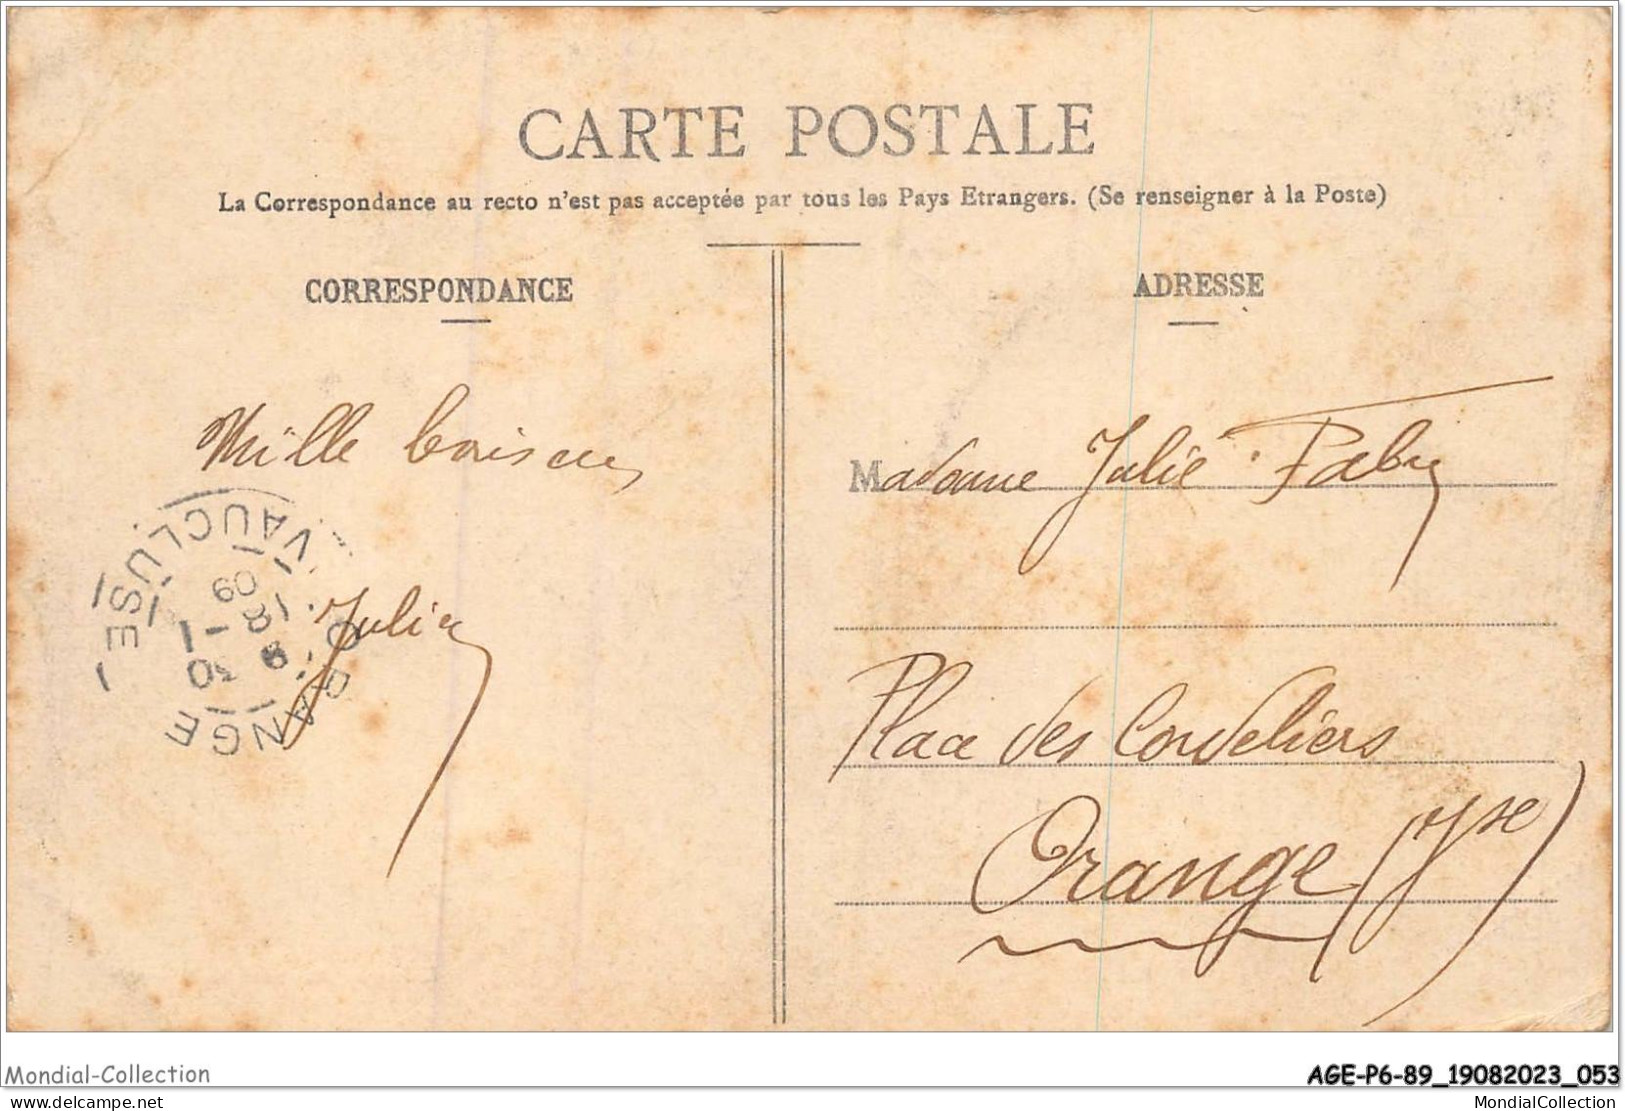 CARTE POSTALE
La Correspondance au recto n'est pas acceptée par tous les Pays Etrangers. (Se renseigner à la Poste)
CORRESPONDANCE
Mille baisers
Julien
ORANGE
VAUCLUSE
9 30
18 - 1
09
ADRESSE
Madame Julie Fabry
Place des Cordeliers
Orange (Vse)
Mondial-Collection
AGE-P6-89_19082023_053
www.delcampe.net
MondialCollection